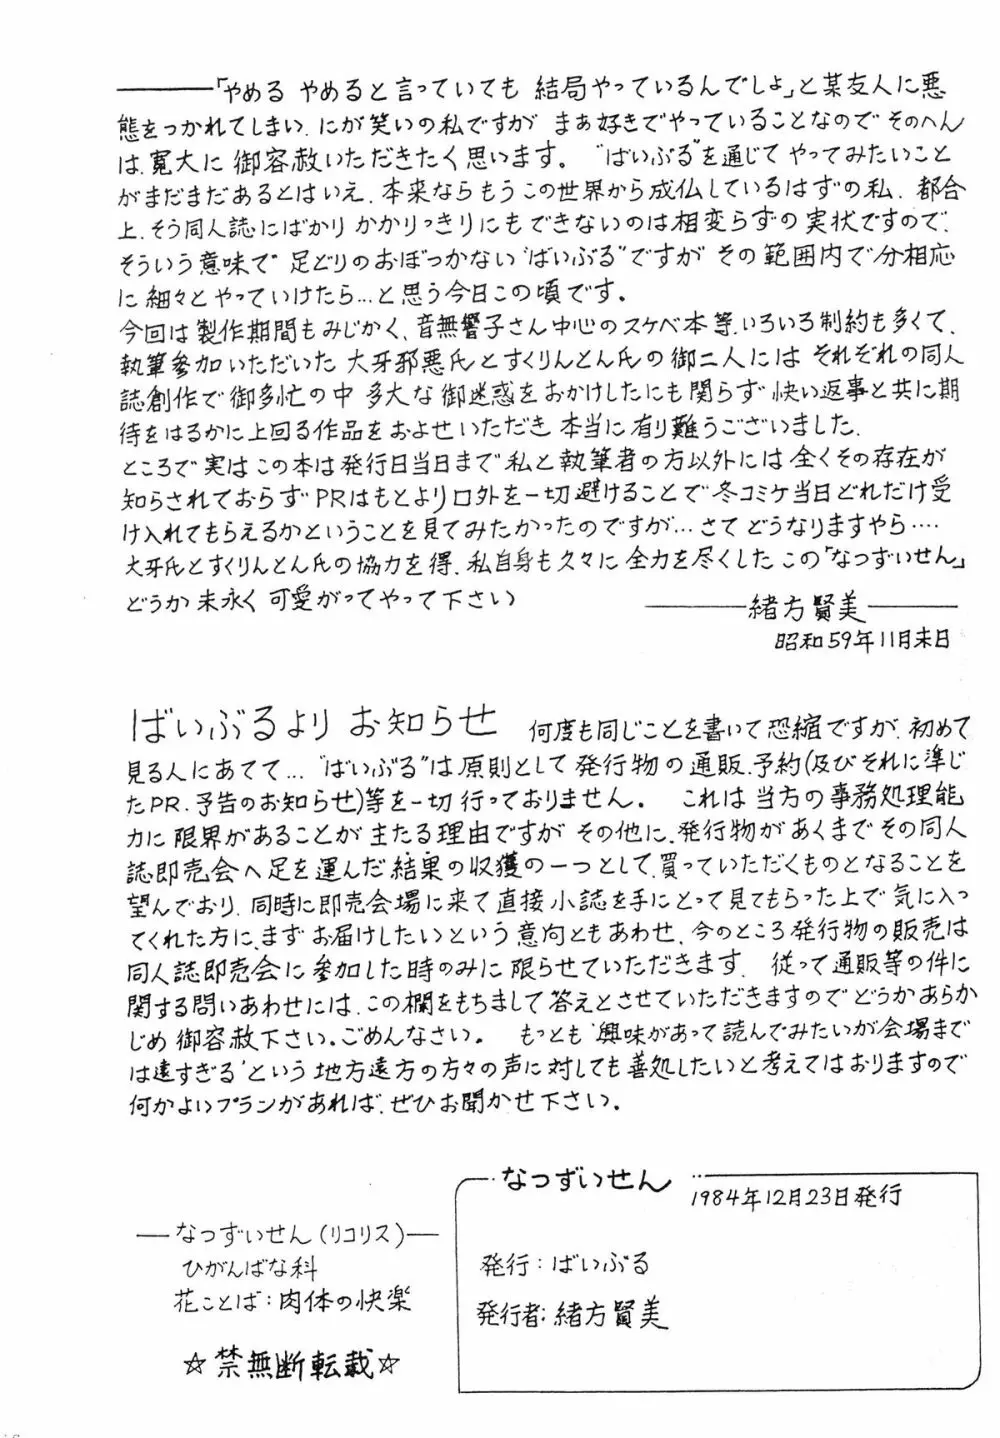 ――――「やめる やめると言っていても 結局やっているんでしょ」と某友人に悪
態をつかれてしまい、にが笑いの私ですが まぁ好きでやっていることなので そのへん
は、寛大に 御容赦いただきたく思います。 “ばいぶる”を通じて やってみたいこと
がまだまだあるとはいえ、本来ならもうこの世界から成仏しているはずの私、都合
上、そう同人誌にばかり かかりっきりにもできないのは相変らずの実状ですので、
そういう意味で 足どりのおぼつかない“ばいぶる”ですが その範囲内で分相応
に 細々とやっていけたら…と思う今日この頃です。
今回は製作期間もみじかく、音無響子さん中心のスケベ本等、いろいろ制約も多くて、
執筆参加いただいた 大牙邪悪氏とすくりんとん氏の御二人には それぞれの同人
誌創作で御多忙の中 多大な御迷惑をおかけしたにも関らず 快い返事と共に期
待をはるかに上回る作品をおよせいただき 本当に有り難うございました。
ところで実はこの本は発行日当日まで私と執筆者の方以外には全くその存在が
知らされておらず PRはもとより口外を一切避けることで冬コミケ当日どれだけ受
け入れてもらえるかということを見てみたかったのですが…さてどうなりますやら‥‥
大牙氏とすくりんとん氏の協力を得、私自身も久々に全力を尽くしたこの「なつずいせん」
どうか末永く可愛がってやって下さい
――――緒方賢美――――
昭和59年11月末日
ばいぶるより お知らせ 何度も同じことを書いて恐縮ですが、初めて
見る人にあてて… “ばいぶる”は原則として発行物の通販、予約(及びそれに準じ
たPR、予告のお知らせ)等を一切行っておりません。 これは当方の事務処理能
力に限界があることが主たる理由ですが その他に、発行物があくまでその同人
誌即売会へ足を運んだ結果の収獲の一つとして、買っていただくものとなることを
望んでおり、同時に即売会場に来て直接小誌を手にとって見てもらった上で気に入っ
てくれた方に、まずお届けしたいという意向ともあわせ、今のところ発行物の販売は
同人誌即売会に参加した時のみに限らせていただきます。 従って通販等の件に
関する問いあわせには、この欄をもちまして答えとさせていただきますのでどうかあらか
じめ御容赦下さい。ごめんなさい。 もっとも‘興味があって読んでみたいが会場まで
は遠すぎる’という地方遠方の方々の声に対しても善処したいと考えてはおりますので
何かよいプランがあれば、ぜひお聞かせ下さい。
―なつずいせん(リコリス)―
ひがんばな科
花ことば:肉体の快楽
☆禁無断転載☆
なつずいせん
1984年12月23日発行
発行:ばいぶる
発行者:緒方賢美